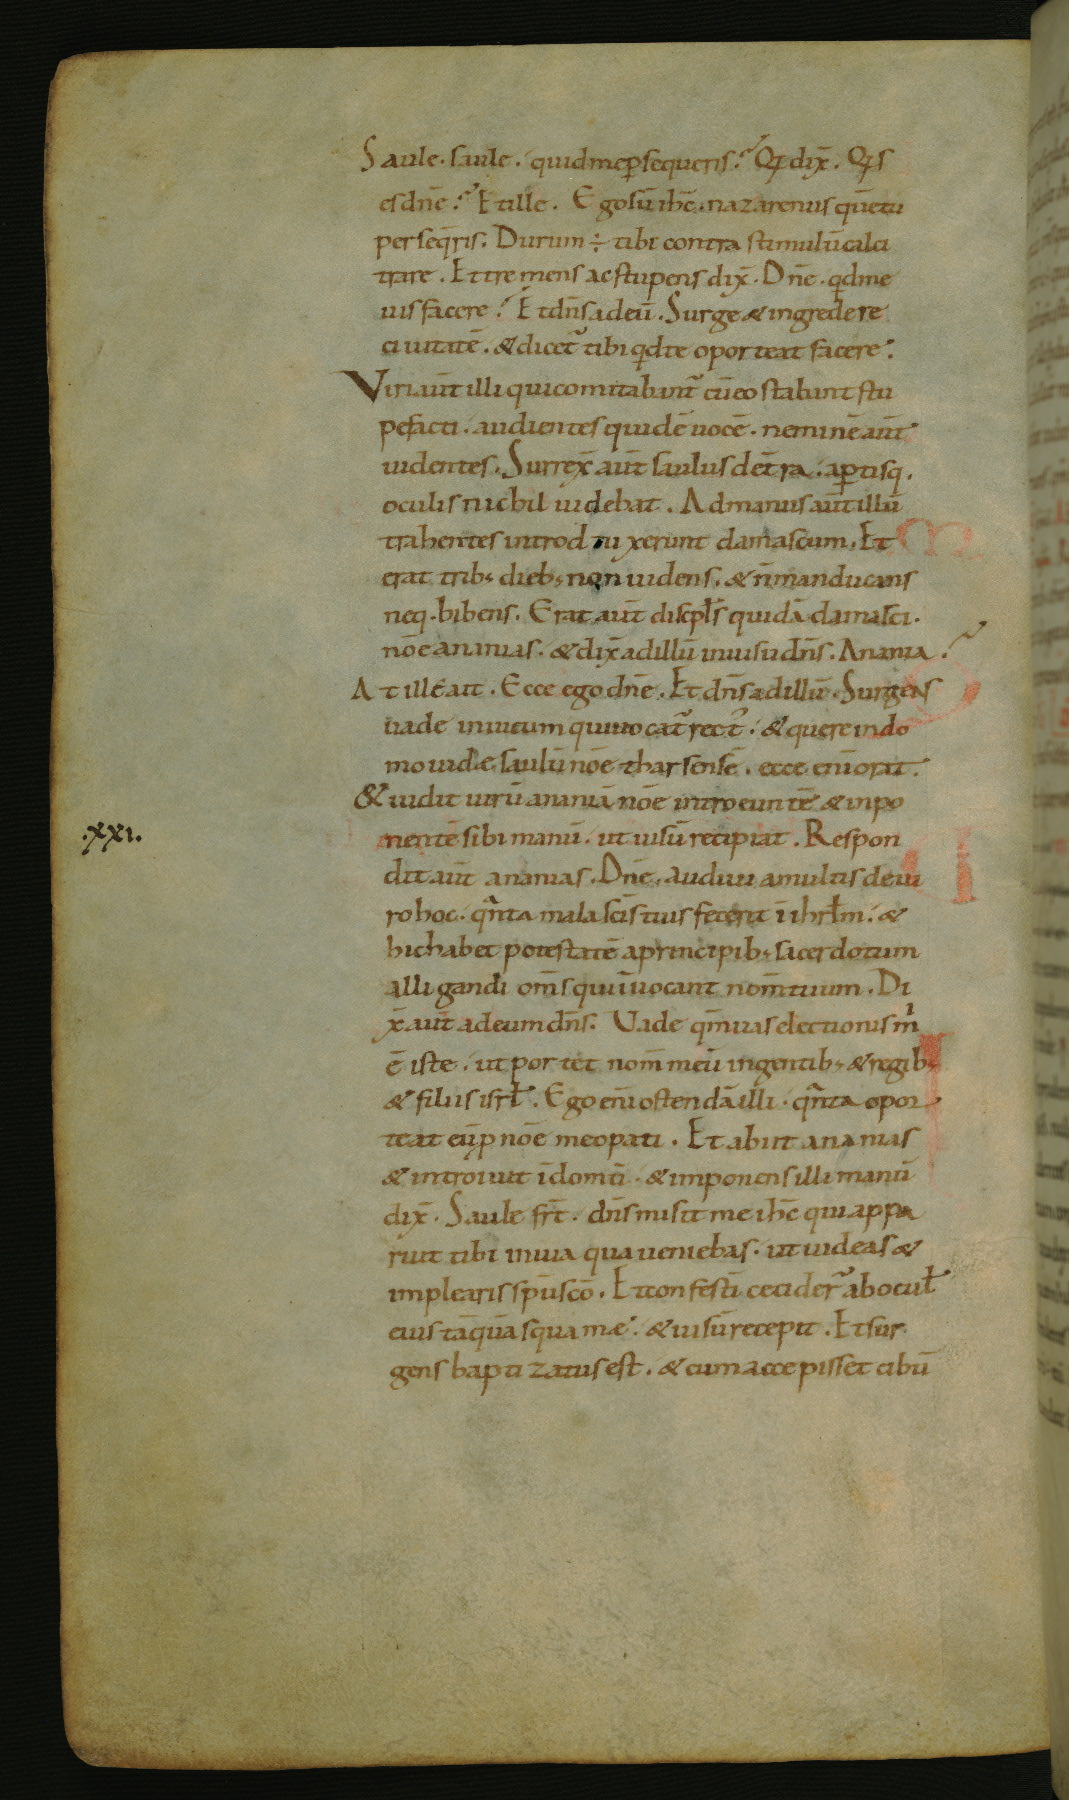 Saule. saule. quid me ꝑsequeris? Qͥ dix̄. Qͥs
es dn̄e? Et ille. Ego sū ih̄c. nazarenus quē tu
perseqͥris. Durum ÷ tibi contra stimulū calci
trare. Et tremens ac stupens dix̄. Dn̄e. qͥd me
uis facere? Et dn̄s ad eū. Surge & ingredere
ciuitatē. & dicet᷑ tibi qͥd te oporteat facere.
Viri aūt illi qui comitabant᷑ cū eo stabant stu
pefacti. audientes quidē uocē. neminē aūt
uidentes. Surrex̄ aūt saulus de t̄ra. aꝑtisq.
oculis nichil uidebat. Ad manus aūt illū
trahentes introduxerunt damascum. Et
erat trib; dieb; non uidens. & n̄ manducans
neq. bibens. Erat aūt discipl̄s quidā damasci.
nōe ananias. & dix̄ ad illū in uisu dn̄s. Anania.
At ille ait. Ecce ego dn̄e. Et dn̄s ad illū. Surgens
uade in uicum qui uocat᷑ rect᷒. & quere in do
mo iudæ saulū nōe tharsensē. ecce eni orat.
& uidit uirū ananiā nōe introeuntē & inpo
.xxi. nentē sibi manū. ut uisū recipiat. Respon
dit aūt ananias. Dn̄e. audiui a multis de ui
ro hoc. qͣnta mala scīs tuis fecerit ī ihrłm. &
hic habet potestatē a principib; sacerdotum
alligandi om̄s qui īuocant nom̄ tuum. Di
x̄ aūt ad eum dn̄s. Uade qm̄ uas electionis mͥ
ē iste. ut portet nom̄ meū in gentib; & regib;
& filiis isrł. Ego eni ostendā illi. qͣnta opor
teat eū ꝓ nōe meo pati. Et abiit ananias
& introiuit ī domū. & imponens illi manū
dix̄. Saule frt̄. dn̄s misit me ih̄c qui appa
ruit tibi in uia qua ueniebas. ut uideas &
implearis sp̄u scō. Et confestī cecider᷑ ab ocuł
eius tāquā squamæ. & uisū recepit. Et sur
gens baptizatus est. & cum accepisset cibū